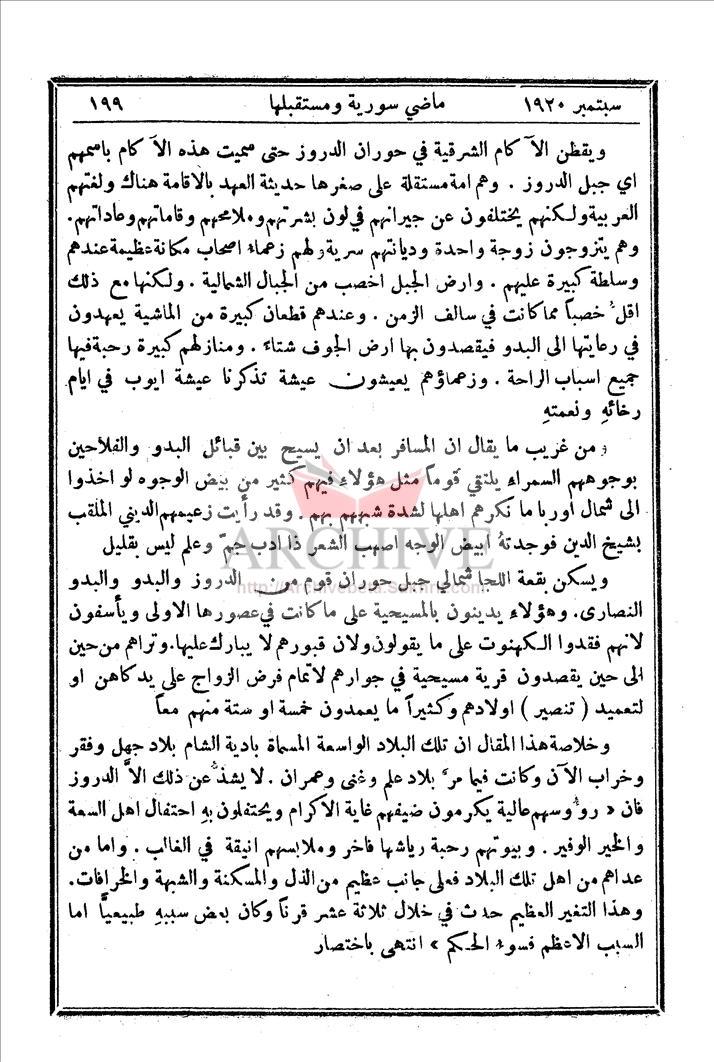 سبتمبر ١٩٢٠ ماضي سورية ومستقبلها ١٩٩
ويقطن الآكام الشرقية في حوران الدروز حتى سميت هذه الآكام باسمهم
اي جبل الدروز . وهم امة مستقلة على صغرها حديثة العهد بالاقامة هناك ولغتهم
العربية ولكنهم يختلفون عن جيرانهم في لون بشرتهم وملامحهم وقاماتهم وعاداتهم.
وهم يتزوجون زوجة واحدة وديانتهم سرية ولهم زعماء اصحاب مكانة عظيمة عندهم
وسلطة كبيرة عليهم . وارض الجبل اخصب من الجبال الشمالية . ولكنها مع ذلك
اقلُّ خصباً مما كانت في سالف الزمن . وعندهم قطعان كبيرة من الماشية يعهدون
في رعايتها الى البدو فيقصدون بها ارض الجوف شتاءً . ومنازلهم كبيرة رحبة فيها
جميع اسباب الراحة . وزعماؤهم يعيشون عيشة تذكرنا عيشة ايوب في ايام
رخائهِ ونعمتهِ
ومن غريب ما يقال ان المسافر بعد ان يسيح بين قبائل البدو والفلاحين
بوجوههم السمراء يلتقي قوماً مثل هؤلاء فيهم كثير من بيض الوجوه لو اخذوا
الى شمال اوربا ما نكرهم اهلها لشدة شبههم بهم . وقد رأيت زعيمهم الديني الملقب
بشيخ الدين فوجدتهُ ابيض الوجه اصهب الشعر ذا ادب جمّ وعلم ليس بقليل
ARCHIVE
http://Archivebeta.Sakhrit.com
ويسكن بقعة اللجا شمالي جبل حوران قوم من الدروز والبدو والبدو
النصارى. وهؤلاء يدينون بالمسيحية على ما كانت في عصورها الاولى ويأسفون
لانهم فقدوا الكهنوت على ما يقولون ولان قبورهم لا يبارك عليها. وتراهم من حين
الى حين يقصدون قرية مسيحية في جوارهم لاتمام فرض الزواج على يد كاهن او
لتعميد ( تنصير ) اولادهم وكثيراً ما يعمدون خمسة او ستة منهم معاً
وخلاصة هذا المقال ان تلك البلاد الواسعة المسماة بادية الشام بلاد جهل وفقر
وخراب الآن وكانت فيما مرَّ بلاد علم وغنى وعمران . لا يشذُّ عن ذلك الاَّ الدروز
فان « روُّوسهم عالية يكرمون ضيفهم غاية الاكرام ويحتفلون بهِ احتفال اهل السعة
والخير الوفير . وبيوتهم رحبة رياشها فاخر وملابسهم انيقة في الغالب . واما من
عداهم من اهل تلك البلاد فعلى جانب عظيم من الذل والمسكنة والشبهة والخرافات.
وهذا التغير العظيم حدث في خلال ثلاثة عشر قرناً وكان بعض سببهِ طبيعيًّا اما
السبب الاعظم فسوء الحكم » انتهى باختصار